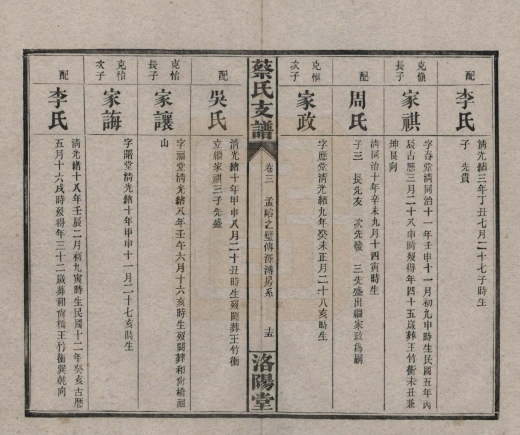 配
李氏
清光緒三年丁丑七月二十七子時生
子 先貴
克慎
長子
家祺
字春堂清同治十一年壬申十一月初九申時生民國五年丙
辰古曆三月二十八申時歿得年四十五歲葬王竹衝未丑兼
坤艮向
配
周氏
清同治十年辛未九月十四寅時生
子三 長先友 次先發 三先盛出繼家政為嗣
克慎
次子
家政
字應堂清光緒九年癸未正月二十八亥時生
蔡氏支譜
卷三
洛陽堂
配
吳氏
清光緒十年甲申八月二十丑時生歿闕葬王竹衝
立繼家祺三子先盛
克怡
長子
家讓
字福堂清光緒八年壬午六月十六亥時生歿闕葬和尙橋祖
山
克怡
次子
家誨
字階堂清光緒十年甲申十一月二十七亥時生
配
李氏
清光緒十八年壬辰二月初九寅時生民國十二年癸亥古曆
五月十六戌時歿得年三十二歲葬和尙橋王竹衝巽乾向